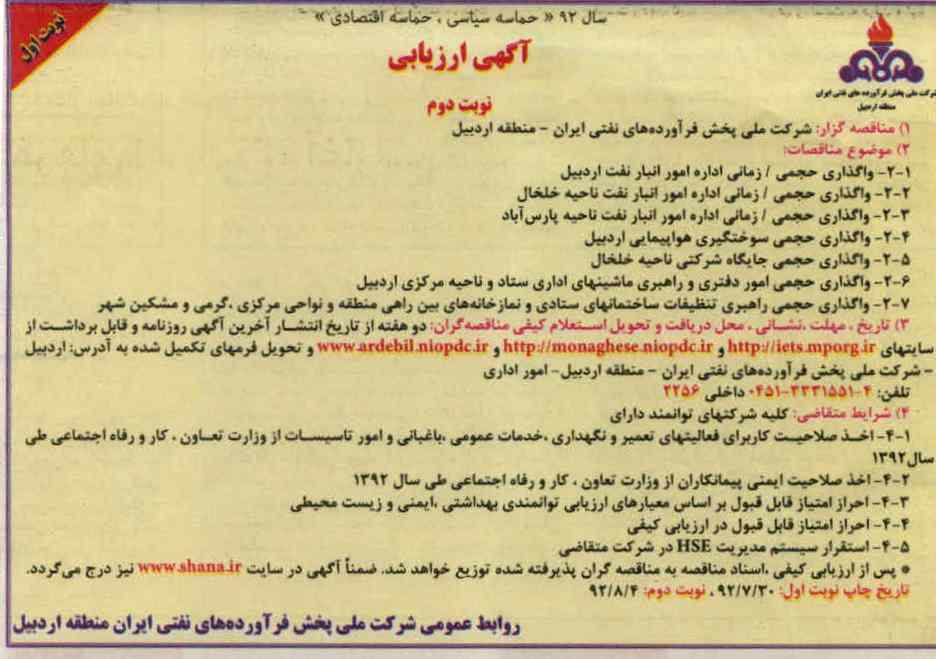 سال ۹۲ « حماسه سیاسی ، حماسه اقتصادی »
نوبت اول
آگهی ارزیابی
شرکت ملی پخش فرآورده های نفتی ایران
منطقه اردبیل
نوبت دوم
۱) مناقصه گزار: شرکت ملی پخش فرآورده‌های نفتی ایران - منطقه اردبیل
۲) موضوع مناقصات:
۲-۱- واگذاری حجمی / زمانی اداره امور انبار نفت اردبیل
۲-۲- واگذاری حجمی / زمانی اداره امور انبار نفت ناحیه خلخال
۲-۳- واگذاری حجمی / زمانی اداره امور انبار نفت ناحیه پارس‌آباد
۲-۴- واگذاری حجمی سوختگیری هواپیمایی اردبیل
۲-۵- واگذاری حجمی جایگاه شرکتی ناحیه خلخال
۲-۶- واگذاری حجمی امور دفتری و راهبری ماشینهای اداری ستاد و ناحیه مرکزی اردبیل
۲-۷- واگذاری حجمی راهبری تنظیفات ساختمانهای ستادی و نمازخانه‌های بین راهی منطقه و نواحی مرکزی ،گرمی و مشکین شهر
۳) تاریخ ، مهلت ،نشانی ، محل دریافت و تحویل استعلام کیفی مناقصه‌گران: دو هفته از تاریخ انتشار آخرین آگهی روزنامه و قابل برداشت از
سایتهای http://iets.mporg.ir و http://monaghese.niopdc.ir و www.ardebil.niopdc.ir و تحویل فرمهای تکمیل شده به آدرس: اردبیل
- شرکت ملی پخش فرآورده‌های نفتی ایران - منطقه اردبیل- امور اداری
تلفن: ۴-۳۳۳۱۵۵۱-۰۴۵۱ داخلی ۲۲۵۶
۴) شرایط متقاضی: کلیه شرکتهای توانمند دارای
۴-۱- اخذ صلاحیت کاربرای فعالیتهای تعمیر و نگهداری ،خدمات عمومی ،باغبانی و امور تاسیسات از وزارت تعاون ، کار و رفاه اجتماعی طی
سال۱۳۹۲
۴-۲- اخذ صلاحیت ایمنی پیمانکاران از وزارت تعاون ، کار و رفاه اجتماعی طی سال ۱۳۹۲
۴-۳- احراز امتیاز قابل قبول بر اساس معیارهای ارزیابی توانمندی بهداشتی ،ایمنی و زیست محیطی
۴-۴- احراز امتیاز قابل قبول در ارزیابی کیفی
۴-۵- استقرار سیستم مدیریت HSE در شرکت متقاضی
* پس از ارزیابی کیفی ،اسناد مناقصه به مناقصه گران پذیرفته شده توزیع خواهد شد. ضمناً آگهی در سایت www.shana.ir نیز درج می‌گردد.
تاریخ چاپ نوبت اول: ۹۲/۷/۳۰ ، نوبت دوم: ۹۲/۸/۴
روابط عمومی شرکت ملی پخش فرآورده‌های نفتی ایران منطقه اردبیل